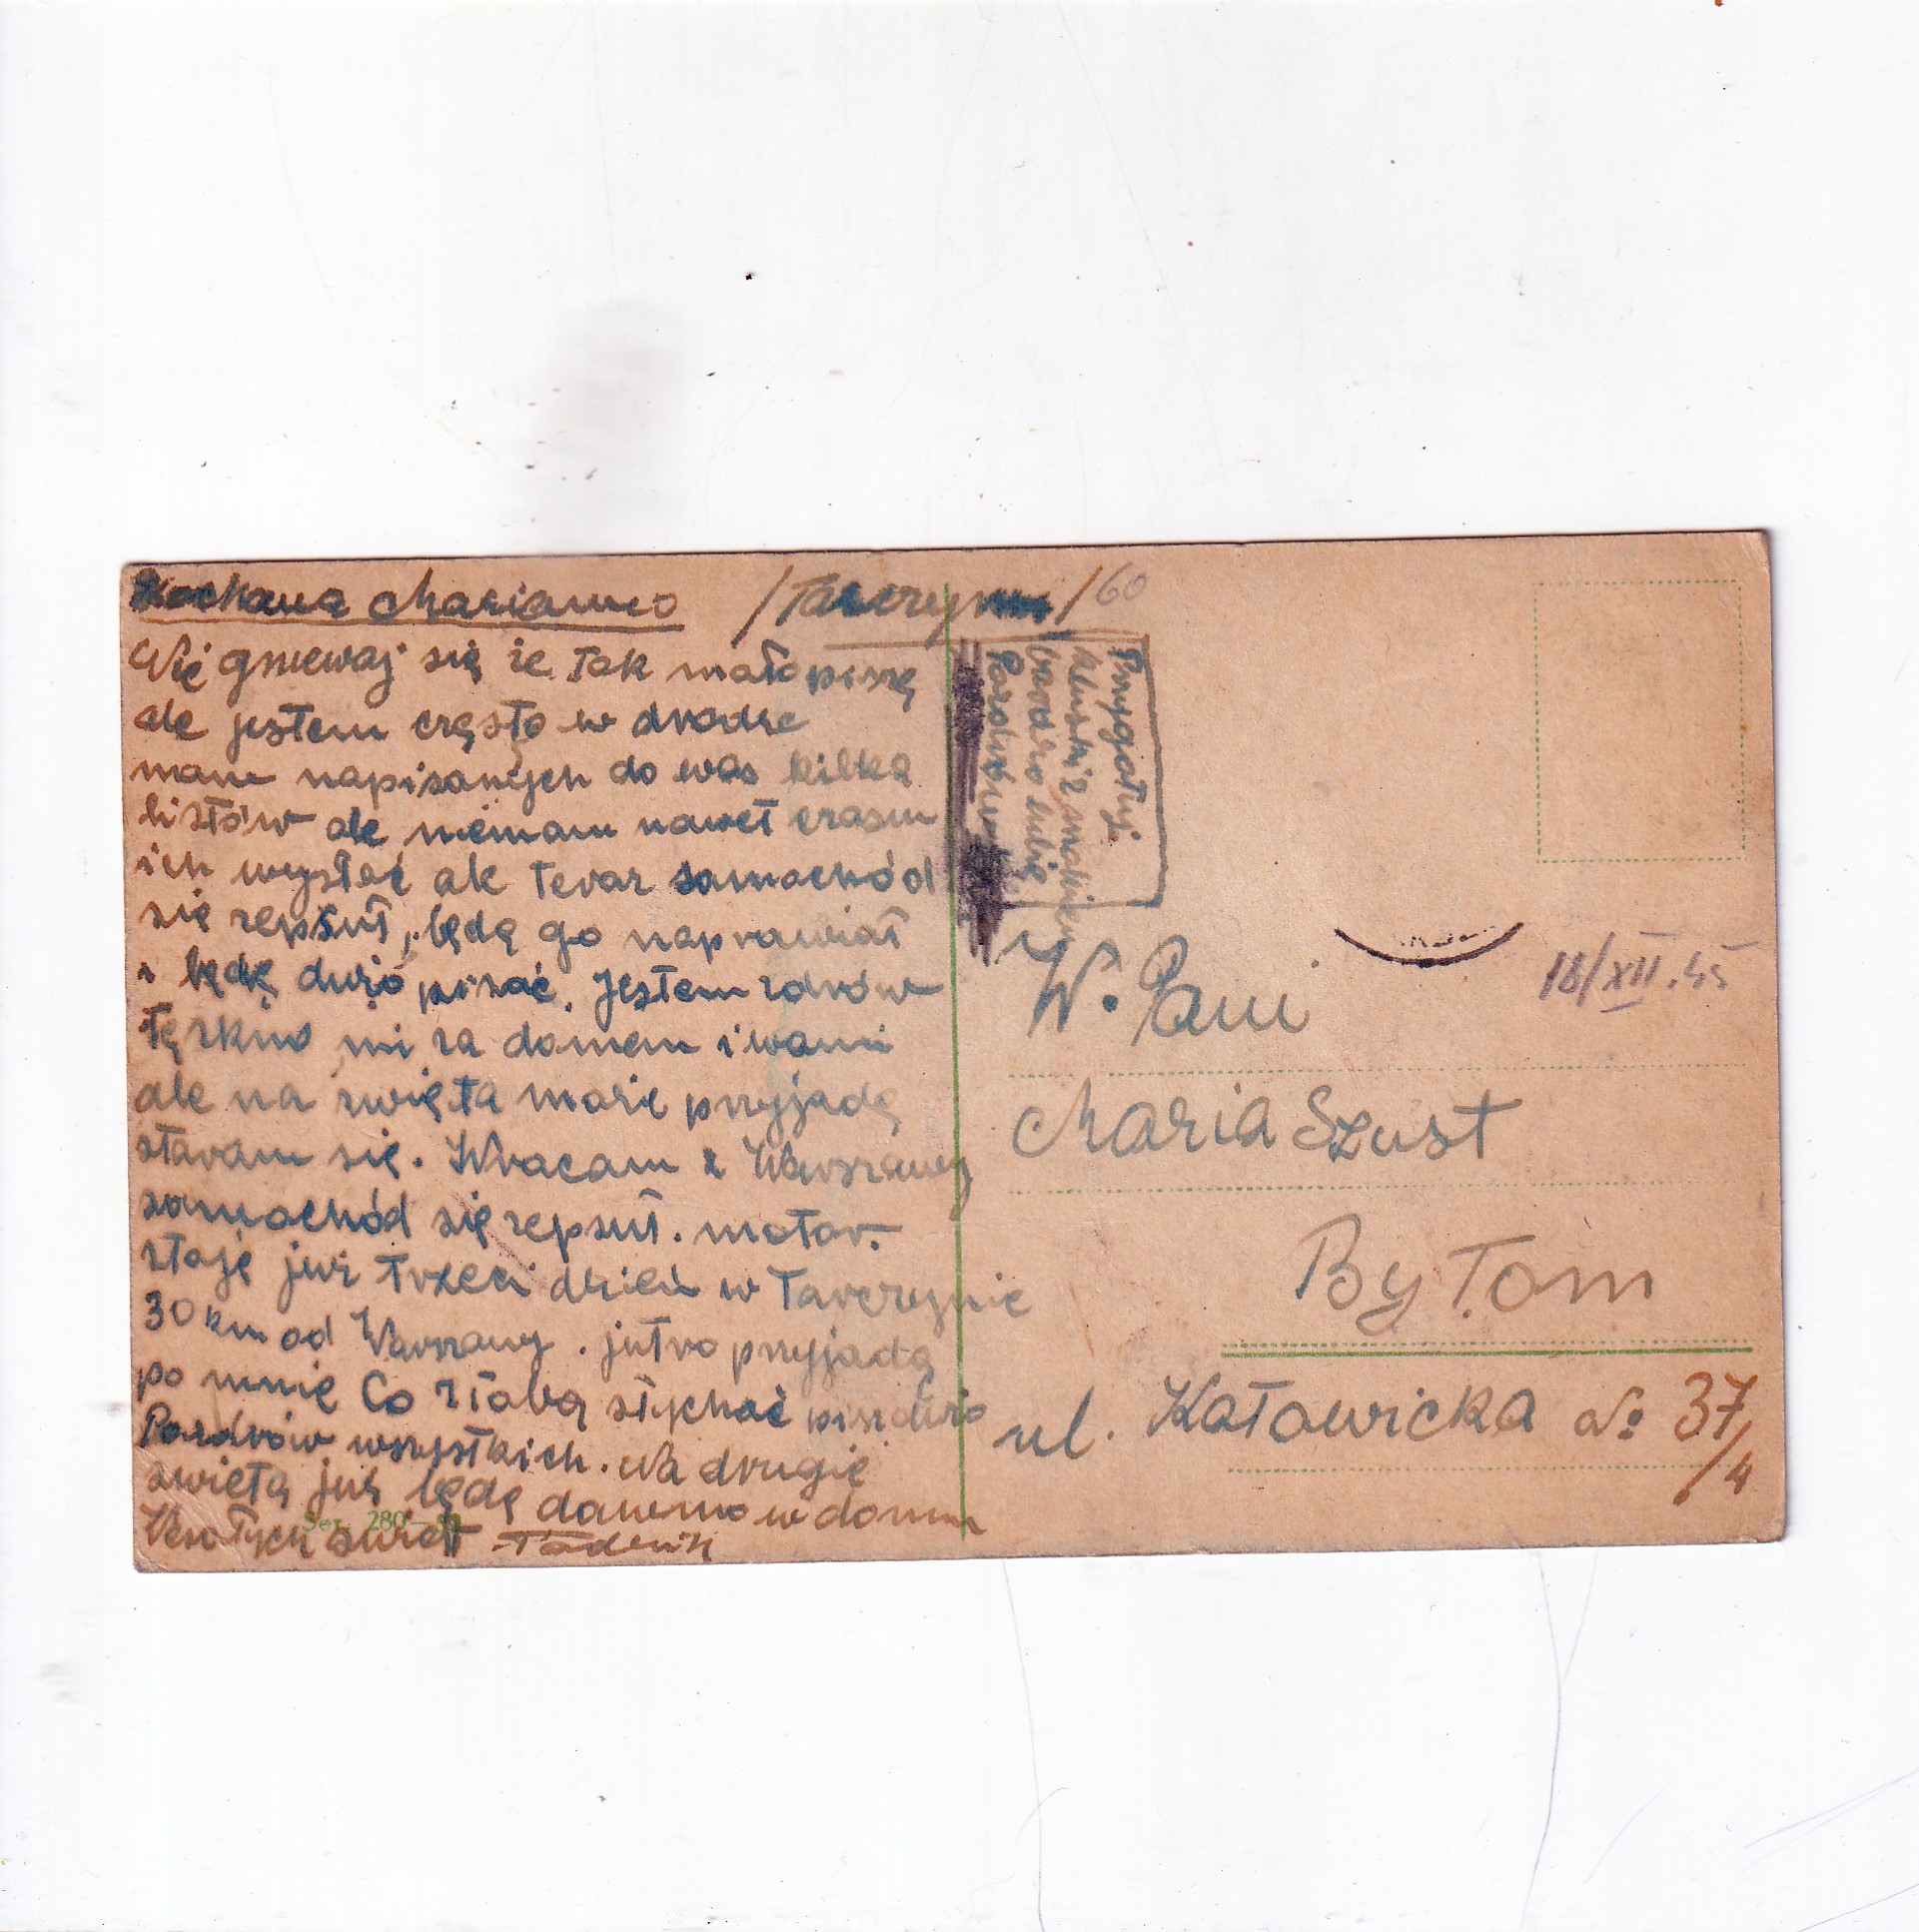 Kochana Marianno /Tarczyn/ 60
Nie gniewaj się że tak mało piszę
ale jestem często w drodze
mam napisanych do was kilka
listów ale niemam nawet czasu
ich wysłać ale teraz samochód
się zepsuł, będą go naprawiał
i będę dużo pisać. Jestem zdrów
tęskno mi za domem i wami
ale na święta może przyjadę
staram się. Wracam z Warszawy
samochód się zepsuł. motor.
stoję już trzeci dzień w Tarczynie
30 km od Warszawy. jutro przyjadą
po mnie Co z Tobą słychać pisz dużo
Pozdrów wszystkich. Na drugie
święta już będę dawno w domu
Wesołych świąt Tadeusz
Ser. 280
Przygotuj
kluski z makiem
bardzo lubię
W. Pani
18/XII.45
Maria Szust
Bytom
ul. Katowicka No 37/4